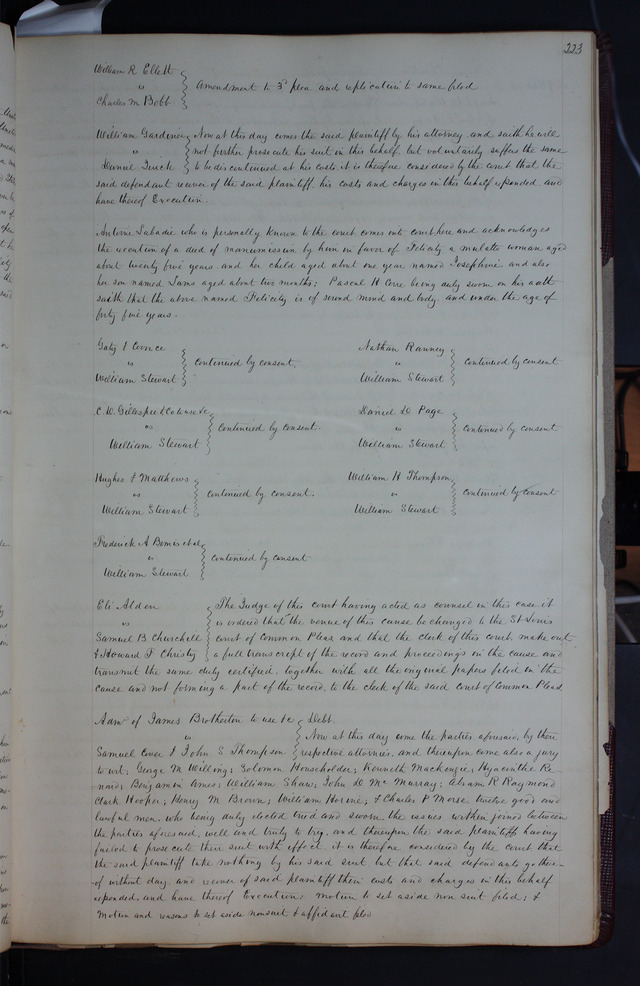 223
William R Ellett
vs
Charles M Bobb
Amendment to 3d plea and replication to same filed
William Gardiner
vs
Daniel Quick
Now at this day comes the said plaintiff by his attorney and saith he will
not further prosecute his suit in this behalf, but voluntarily suffers the same
to be discontinued at his costs it is therefore considered by the court that the
said defendant recover of the said plaintiff his costs and charges in this behalf expended and
have thereof Execution.
Antoine Labadie who is personally known to the court comes into court here and acknowledges
the execution of a deed of manumission by him in favor of Felicity a mulatto woman aged
about twenty five years and her child aged about one year named Josephine and also
her son named Louis aged about two months; Pascal H Cerre being duly sworn on his oath
saith that the above named Felicity is of sound mind and body and under the age of
forty five years.
vs
William Stewart
continued by consent.
Nathan Ranney
vs
William Stewart
continued by consent
C. W. Gillespie &
vs
William Stewart
continued by consent.
Daniel D Page
vs
William Stewart
continued by consent
Hughes & Matthews
vs
William Stewart
continued by consent.
William H Thompson
vs
William Stewart
continued by consent
Frederick A
vs
William Stewart
continued by consent
Eli Alden
vs
Samuel B Churchill
& Howard F Christy
The Judge of this court having acted as counsel in this case it
is ordered that the venue of this cause be changed to the St Louis
court of Common Pleas and that the clerk of this court make out
a full transcript of the record and proceedings in the cause and
transmit the same duly certified, together with all the original papers filed in the
cause and not forming a part of the record, to the clerk of the said court of Common Pleas
Admr of James Brotherton to use &c
vs
Samuel & John S Thompson
Debt.
Now at this day come the parties aforesaid, by their
respective attornies, and thereupon come also a jury
to wit; George M Willing; Solomon Householder; Kenneth Mackenzie; Hyacinthe Re-
nard; Benjamin Ames; William Shaw; John D McMurray; Abram R Raymond
Clark Hooper; Henry M Brown; William Horine; & Charles P Morse twelve good and
lawful men, who being duly elected tried and sworn the issues within joined between
the parties aforesaid, well and truly to try, and thereupon the said plaintiff having
failed to prosecute their suit with effect, it is therefore considered by the court that
the said plaintiff take nothing by his said suit but that said defendants go there-
of without day, and recover of said plaintiff their costs and charges in this behalf
expended, and have thereof Execution; motion to set aside non suit filed; &
Motion and reasons to set aside nonsuit & affidavit filed